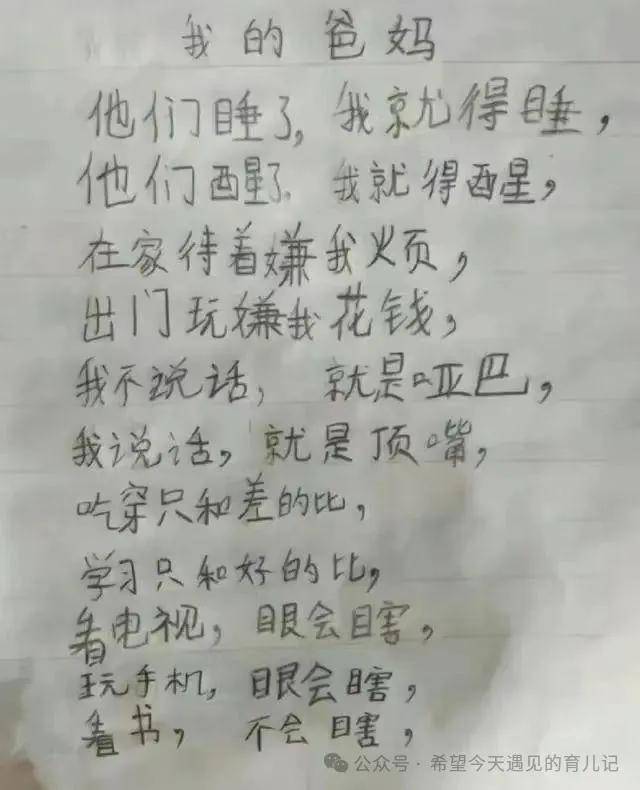 我的爸妈
他们睡了,我就得睡,
他们醒了.我就得醒,
在家待着嫌我烦,
出门玩嫌我花钱,
我不说话,就是哑巴,
我说话,就是顶嘴,
吃穿只和差的比,
学习只和好的比,
看电视,眼会瞎,
玩手机,眼会瞎,
看书,不会瞎,
公众号·希望今天遇见的育儿记